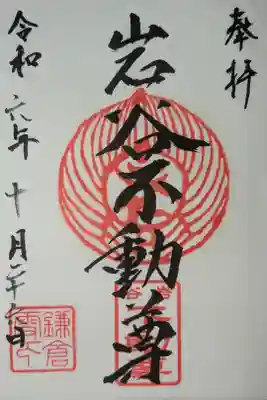 奉拝
岩谷不動尊
令和六年十月二十六日